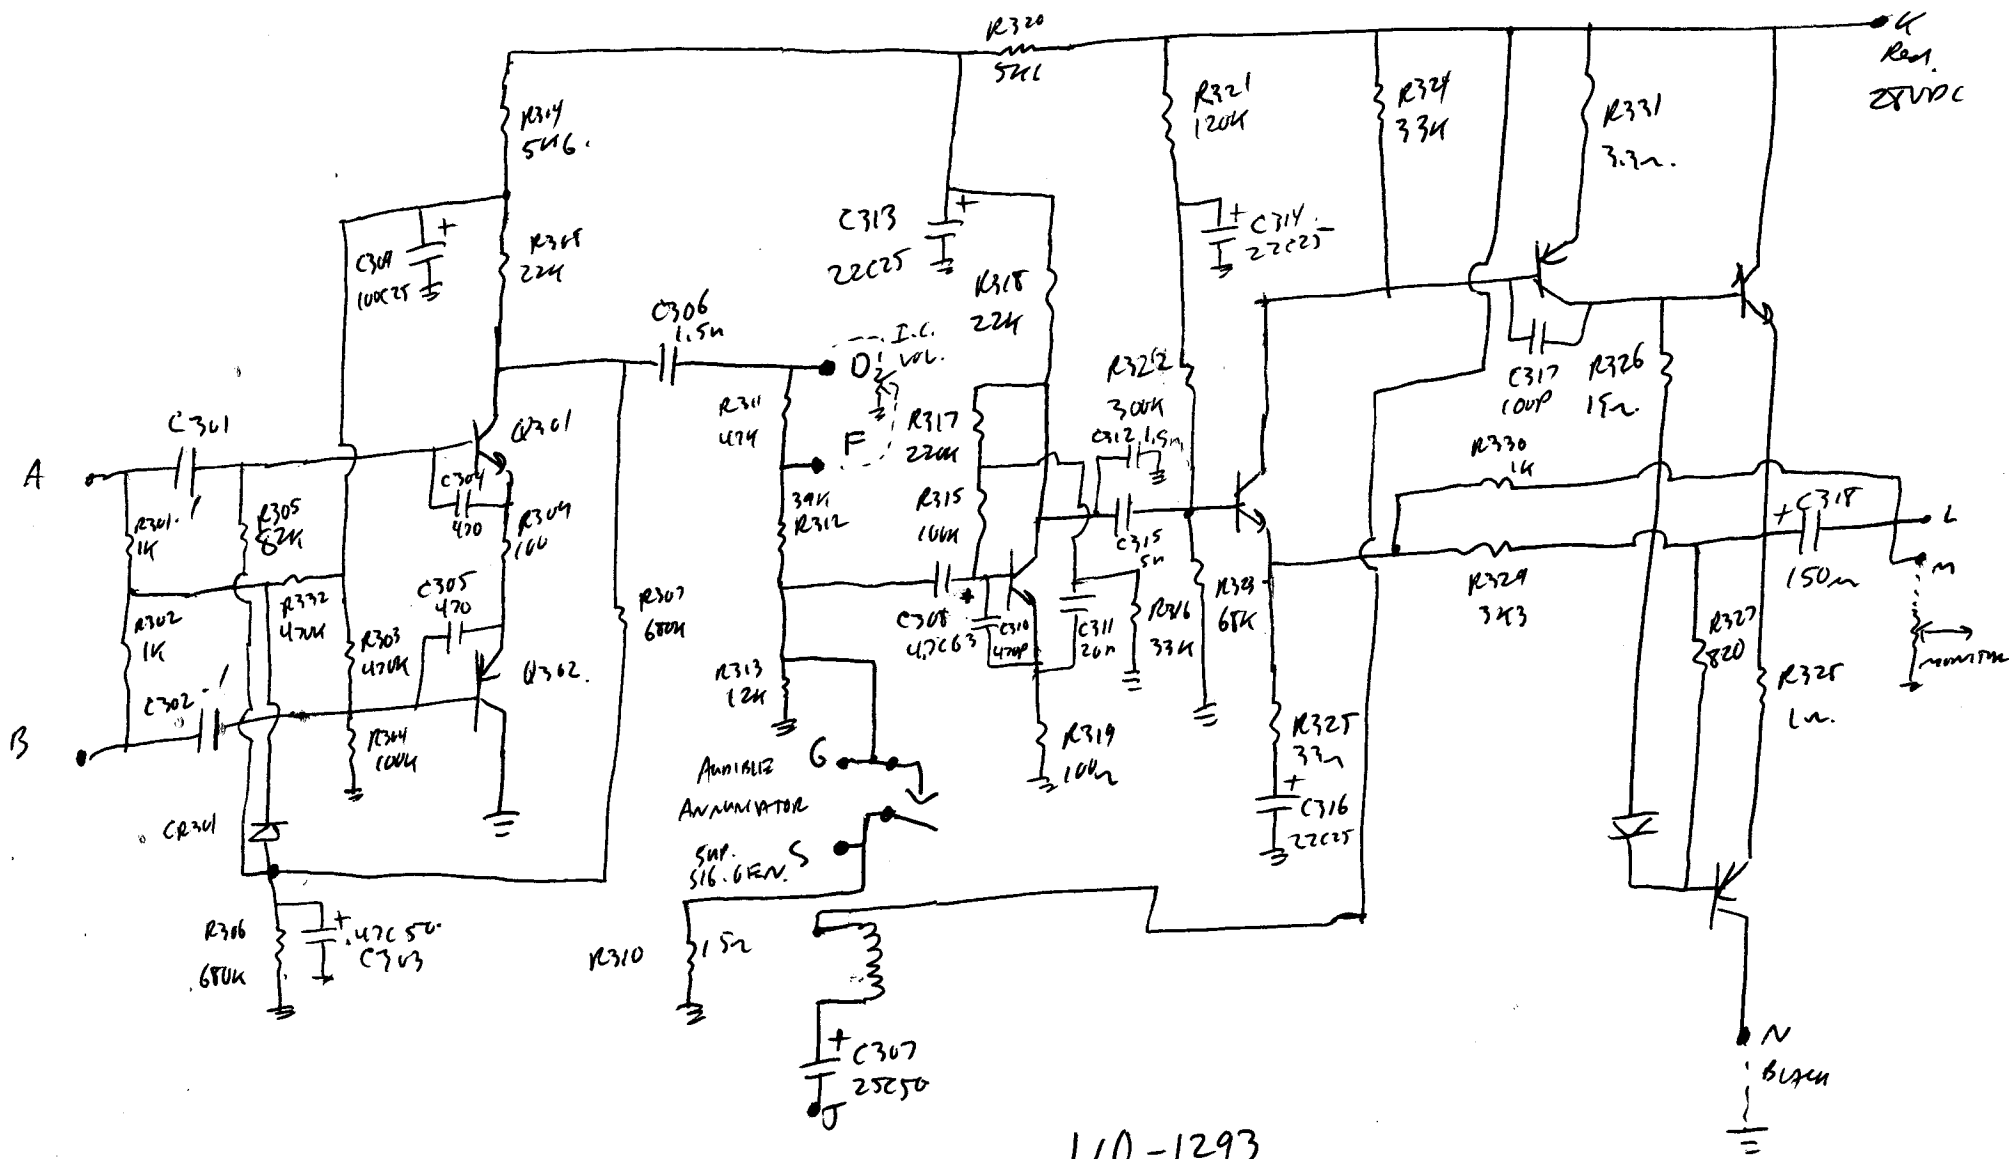 R320
5K6
K
Red.
28VDC
R314
5K6.
R321
120K
R324
33K
R331
3.3Ω.
C309
100C25
+
R308
22K
C313
22C25
+
C314
22C25
+
R318
22K
C306
1.5n
D
I.C.
VOL.
F
R311
47K
R317
220K
R322
300K
C312 1.5n
C317
100P
R326
15Ω
R330
1K
C301
.1
A
Q301
C304
470
R309
100
R301
1K
R305
82K
39K
R312
R315
100K
C315
5n
+
C318
150n
L
M
MONITOR
R302
1K
R332
470K
C305
470
R303
470K
R307
680K
C308
4.7C63
+
C310
470P
C311
20n
R316
33K
R323
68K
R329
3K3
R327
820
R328
1Ω.
B
C302
.1
Q302.
R304
100K
R313
12K
R319
100Ω
R325
33Ω
+
C316
22C25
CR301
AUDIBLE
ANNUNCIATOR
G
SUP.
SIG. GEN.
S
R306
680K
+
.47C50
C303
R310
15Ω
+
C307
25C50
J
N
BLACK